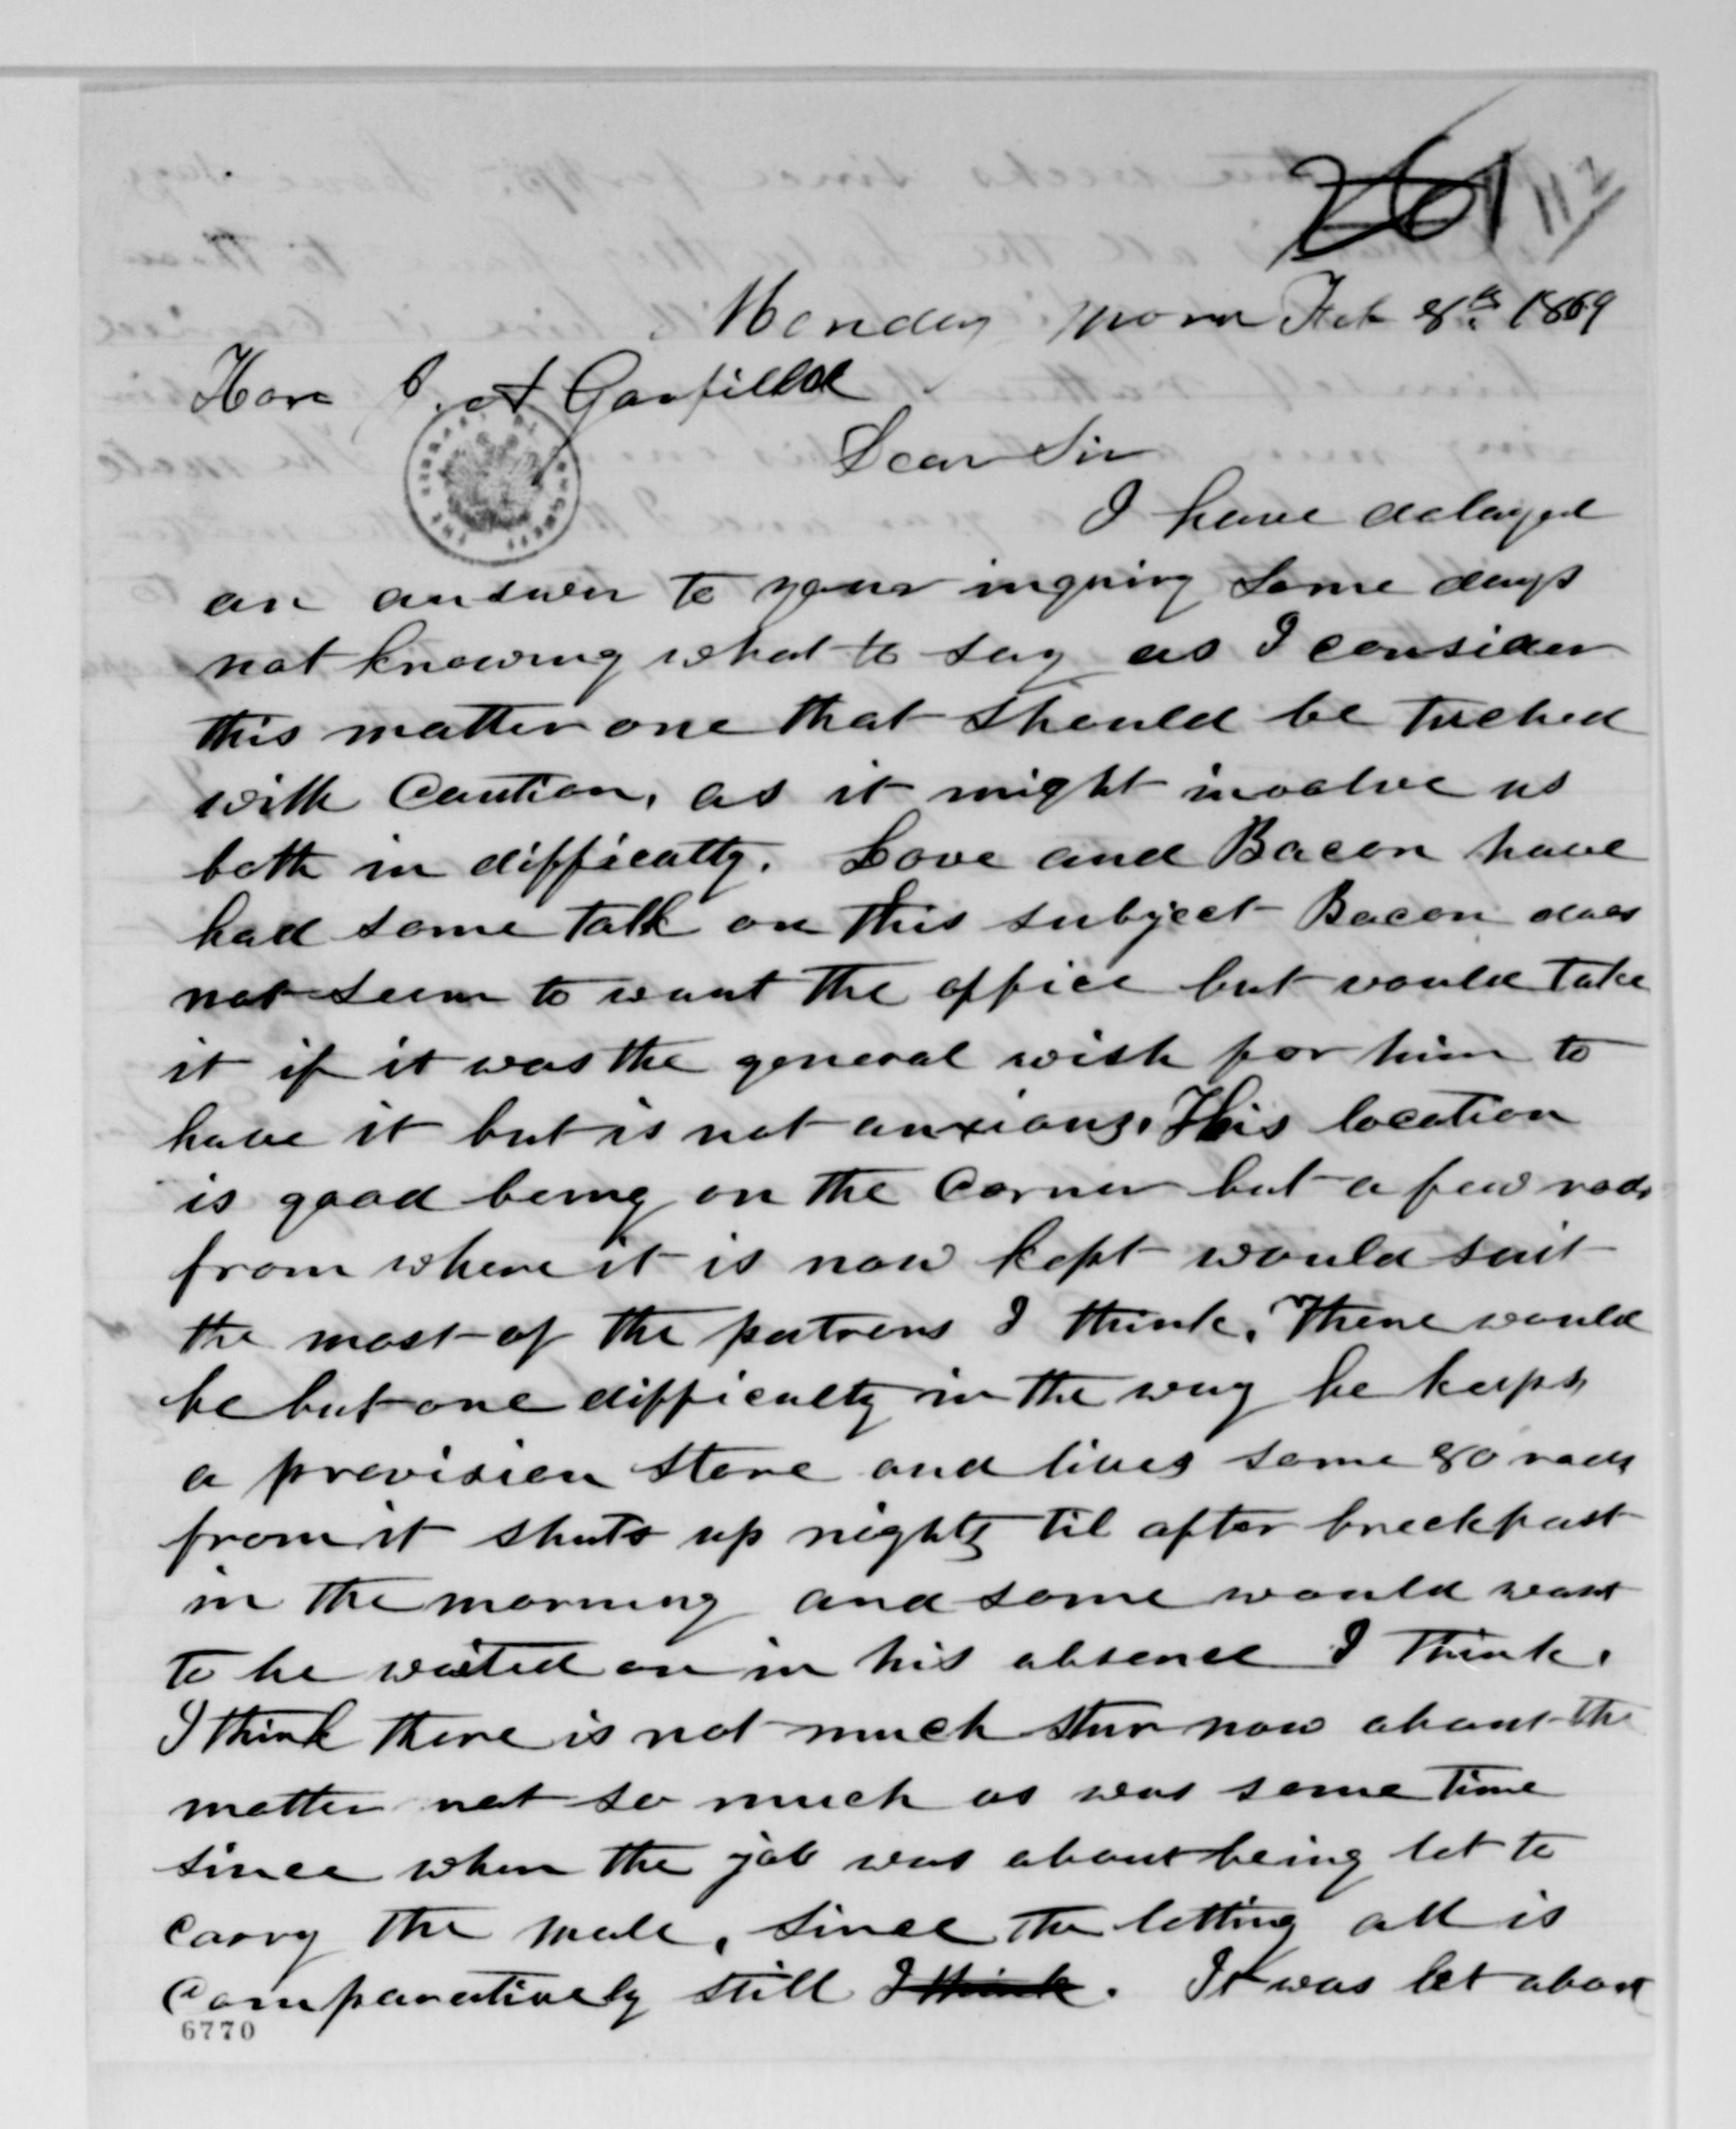 261 112
Monday morn Feb 8th 1869
Hon J. A Garfield
Dear Sir
I have delayed
an answer to your inquiry some days
not knowing what to say as I consider
this matter one that should be tuched
with Caution, as it might involve us
both in difficulty. Love and Bacon have
had some talk on this subject Bacon does
not seem to want the office but would take
it if it was the general wish for him to
have it but is not anxious. This location
is good being on the Corner but a few rods
from where it is now kept would suit
the most of the patrons I think. There would
be but one difficulty in the way he keeps
a provision store and lives some 80 rods
from it shuts up nights til after breckfast
in the morning and some would want
to be waited on in his absence I think.
I think there is not much stur now about the
matter not so much as was some time
since when the job was about being let to
carry the male, since the letting all is
Comparatively still I think. It was let about
6770